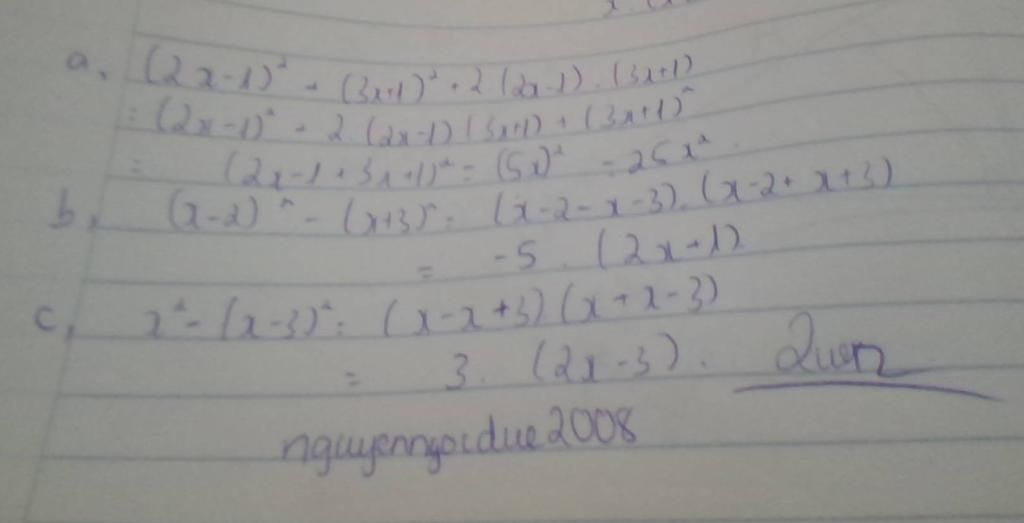 a, (2x-1)² + (3x+1)² + 2(2x-1).(3x+1)
= (2x-1)² + 2.(2x-1)(3x+1) + (3x+1)²
= (2x-1+3x+1)² = (5x)² = 25x²
b, (x-2)² - (x+3)² = (x-2-x-3).(x-2+x+3)
= -5.(2x+1)
c, x² - (x-3)² = (x-x+3)(x+x-3)
= 3.(2x-3).
nguyenngocduc2008